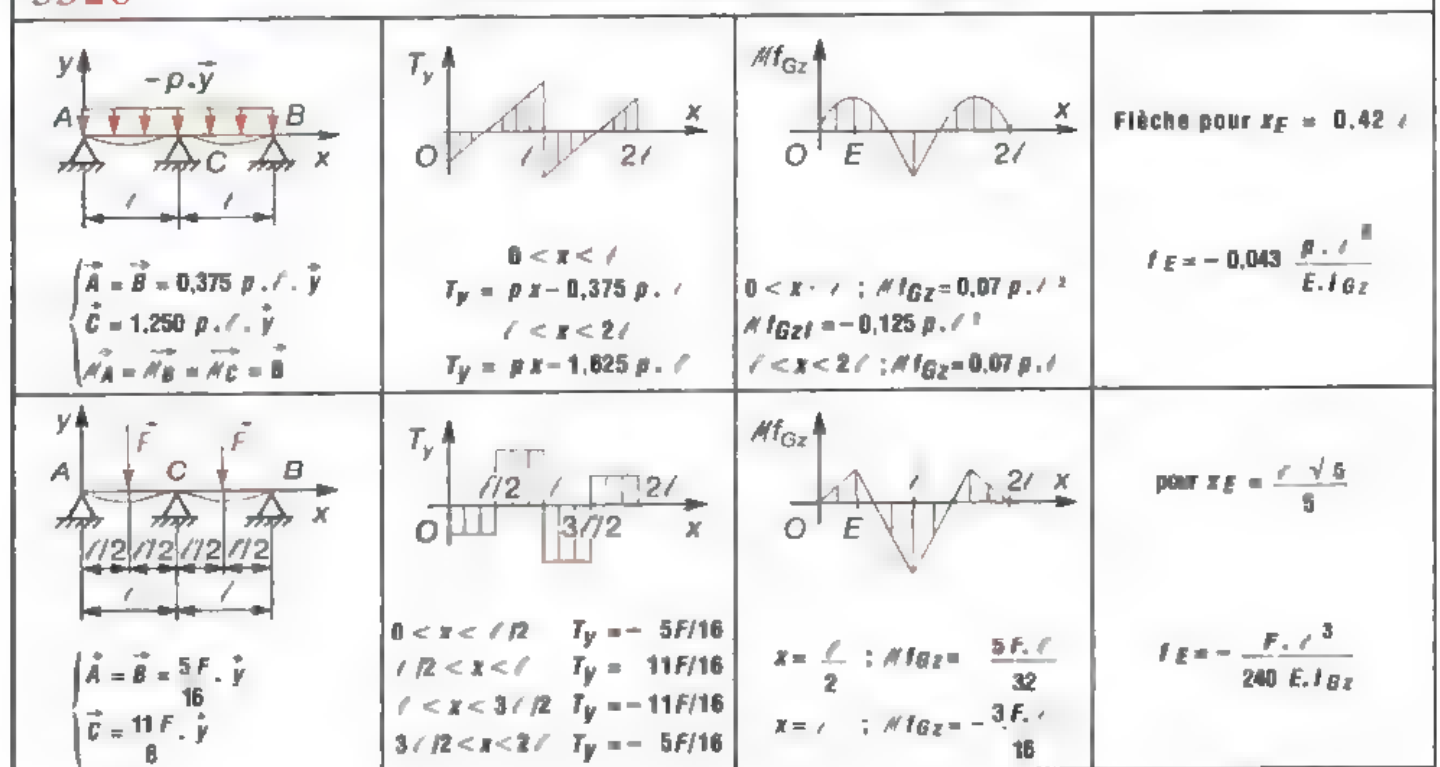 y
-p.y⃗
A B
x
C
ℓ ℓ
A⃗ = B⃗ = 0,375 p.ℓ.y⃗
C⃗ = 1,250 p.ℓ.y⃗
T_y
x
O ℓ 2ℓ
0 < x < ℓ
T_y = px-0,375 p.ℓ
ℓ < x < 2ℓ
T_y = px-1,625 p.ℓ
Mf_Gz
x
O E 2ℓ
0 < x · ℓ ; Mf_Gz = 0,07 p.ℓ²
Mf_Gzℓ = -0,125 p.ℓ²
ℓ < x < 2ℓ ; Mf_Gz = 0,07 p.ℓ
Flèche pour x_E = 0.42 ℓ
f_E = - 0,043 p.ℓ / E.I_Gz
y
F⃗ F⃗
A C B
x
ℓ/2 ℓ/2 ℓ/2 ℓ/2
ℓ ℓ
A⃗ = B⃗ = 5F/16 . y⃗
C⃗ = 11F/8 . y⃗
T_y
ℓ/2 ℓ 2ℓ
O 3ℓ/2 x
0 < x < ℓ/2 T_y = - 5F/16
ℓ/2 < x < ℓ T_y = 11F/16
ℓ < x < 3ℓ/2 T_y = - 11F/16
3ℓ/2 < x < 2ℓ T_y = - 5F/16
Mf_Gz
ℓ 2ℓ x
O E
x = ℓ/2 ; Mf_Gz = 5F.ℓ/32
x = ℓ ; Mf_Gz = - 3F.ℓ/16
pour x_E = ℓ√5/5
f_E = - F.ℓ³ / 240 E.I_Gz